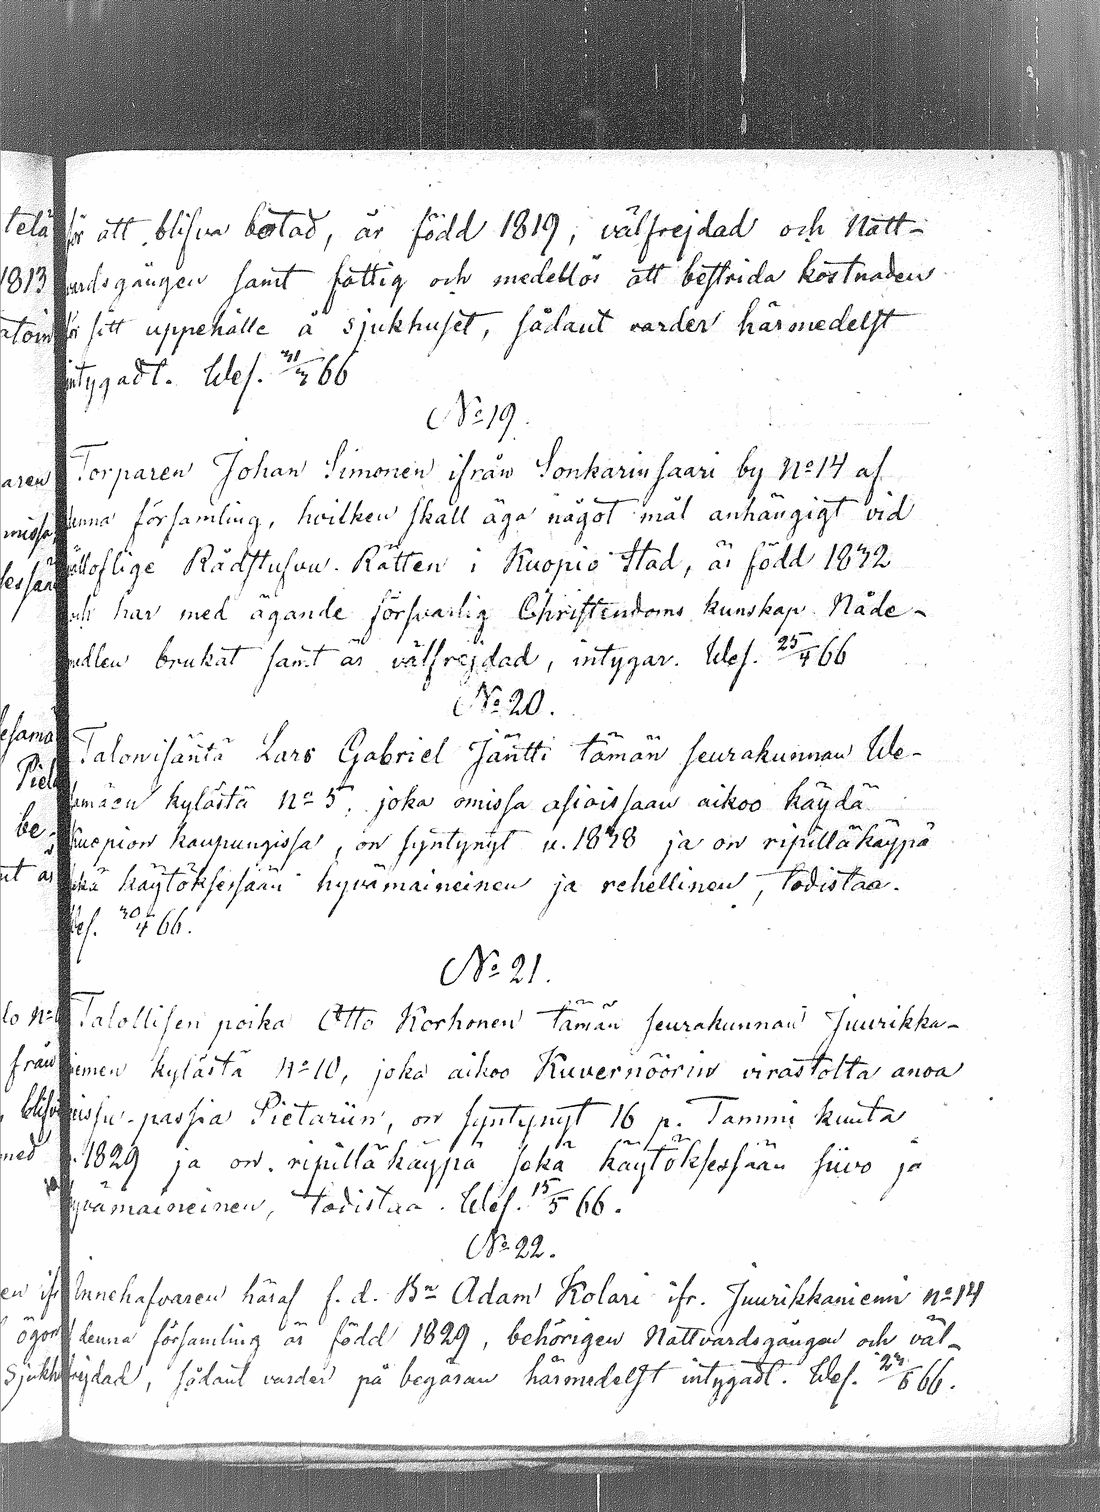 för att blifva botad, är född 1819, välfrejdad och Natt-
vardsgången samt fattig och medellös att bestrida kostnaden
för sitt uppehälle å sjukhuset, sådant varder härmedelst
intygadt. Wes. 31/3 66
No 19.
Torparen Johan Simonen ifrån Sonkarinsaari by No 14 af
denna församling, hvilken skall äga något mål anhängigt vid
välloflige Rådstufvu-Rätten i Kuopio Stad, är född 1832
och har med ägande försvarlig Christendoms kunskap Nåde-
medlen brukat samt är välfrejdad, intygar. Wes. 25/4 66
No 20.
Talonisäntä Lars Gabriel Jäntti tämän seurakunnan We-
samäen kylästä No 5, joka omissa asioissaan aikoo käydä
Kuopion kaupungissa, on syntynyt v. 1838 ja on ripilläkäypä
sekä käytöksessään hyvämaineinen ja rehellinen, todistaa.
Wes. 30/4 66.
No 21.
Talollisen poika Otto Korhonen tämän seurakunnan Juurikka-
niemen kylästä No 10, joka aikoo Kuvernöörin virastolta anoa
reissu-passia Pietariin, on syntynyt 16 p. Tammi kuuta
v. 1829 ja on ripilläkäypä sekä käytöksessään siivo ja
hyvämaineinen, todistaa. Wes. 15/5 66.
No 22.
Innehafvaren häraf f. d. Bn Adam Kolari ifr. Juurikkaniemi No 14
af denna församling är född 1829, behörigen Nattvardsgången och väl-
frejdad, sådant varder på begäran härmedelst intygadt. Wes. 23/5 66.